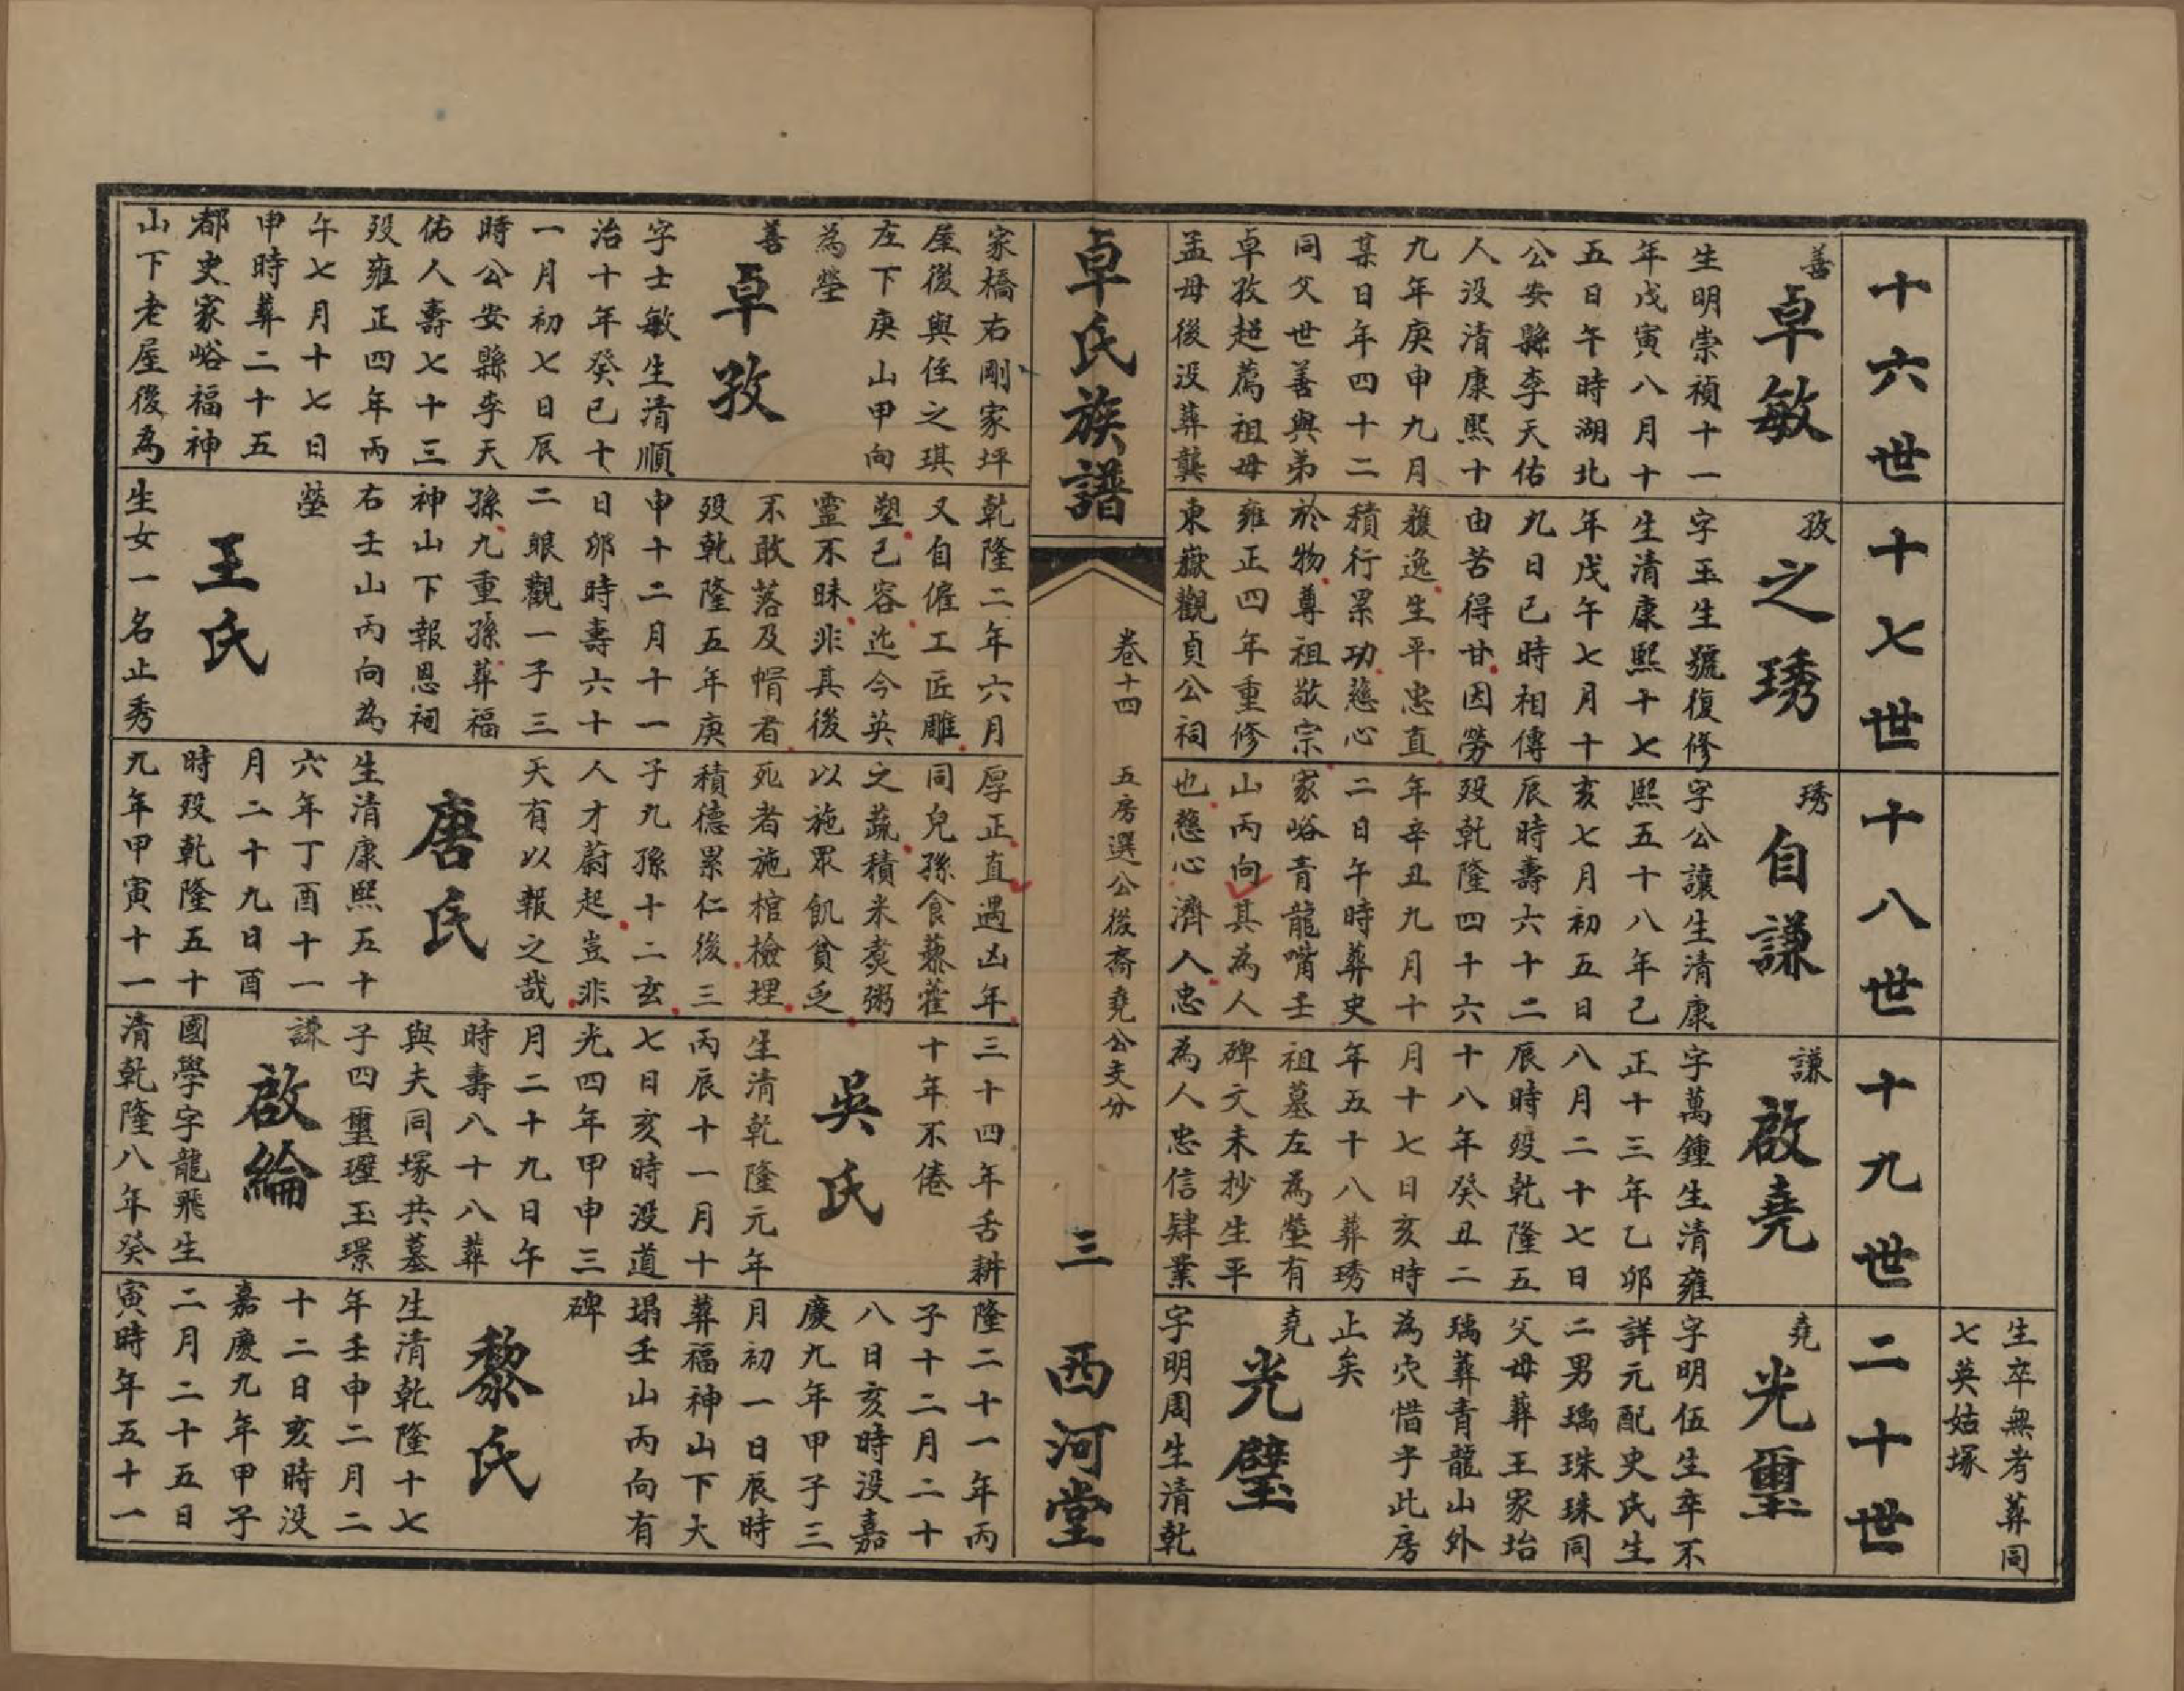 生卒無考葬同
七英姑塚
十六世
十七世
十八世
十九世
二十世
善
卓敏
生明崇禎十一
年戊寅八月十
五日午時湖北
公安縣李天佑
人没清康熙十
九年庚申九月
某日年四十二
同父世善與弟
卓孜超薦祖母
孟母後没葬龔
家橋右剛家坪
屋後與侄之琪
左下庚山甲向
為塋
善
卓孜
字士敏生清順
治十年癸巳十
一月初七日辰
時公安縣李天
佑人壽七十三
殁雍正四年丙
午七月十七日
申時葬二十五
都史家峪福神
山下老屋後為
孜
之琇
字玉生號復修
生清康熙十七
年戊午七月十
九日巳時相傳
由苦得甘因勞
獲逸生平忠直
積行累功慈心
於物尊祖敬宗
雍正四年重修
東嶽觀貞公祠
乾隆二年六月
又自僱工匠雕
塑己容迄今英
靈不昧非其後
不敢落及帽者
殁乾隆五年庚
申十二月十一
日卯時壽六十
二眼觀一子三
孫九重孫葬福
神山下報恩祠
右壬山丙向為
塋
王氏
生女一名止秀
琇
自謙
字公讓生清康
熙五十八年己
亥七月初五日
辰時壽六十二
殁乾隆四十六
年辛丑九月十
二日午時葬史
家峪青龍嘴壬
山丙向其為人
也慈心濟人忠
厚正直遇凶年
同兒孫食藜藿
之蔬積米煑粥
以施眾飢貧乏
死者施棺檢埋
積德累仁後三
子九孫十二玄
人才蔚起豈非
天有以報之哉
唐氏
生清康熙五十
六年丁酉十一
月二十九日酉
時殁乾隆五十
九年甲寅十一
謙
啟堯
字萬鍾生清雍
正十三年乙卯
八月二十七日
辰時殁乾隆五
十八年癸丑二
月十七日亥時
年五十八葬琇
祖墓左為塋有
碑文未抄生平
為人忠信肄業
三十四年舌耕
十年不倦
吳氏
生清乾隆元年
丙辰十一月十
七日亥時没道
光四年甲申三
月二十九日午
時壽八十八葬
與夫同塚共墓
子四璽璧玉璟
謙
啟綸
國學字龍飛生
清乾隆八年癸
堯
光璽
字明伍生卒不
詳元配史氏生
二男瑀珠珠同
父母葬王家坮
瑀葬青龍山外
為穴惜乎此房
止矣
堯
光璧
字明周生清乾
隆二十一年丙
子十二月二十
八日亥時没嘉
慶九年甲子三
月初一日辰時
葬福神山下大
塌壬山丙向有
碑
黎氏
生清乾隆十七
年壬申二月二
十二日亥時没
嘉慶九年甲子
二月二十五日
寅時年五十一
卓氏族譜
卷十四
五房選公後裔堯公支分
三
西河堂